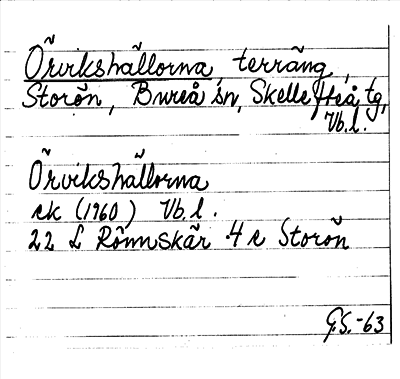 Örvikshällorna, terräng,
Storön, Bureå sn, Skellefteå tg,
Vb.l.
Örvikshällorna
ek (1960) Vb.l.
22 L Rönnskär 4 e Storön
G.S.-63